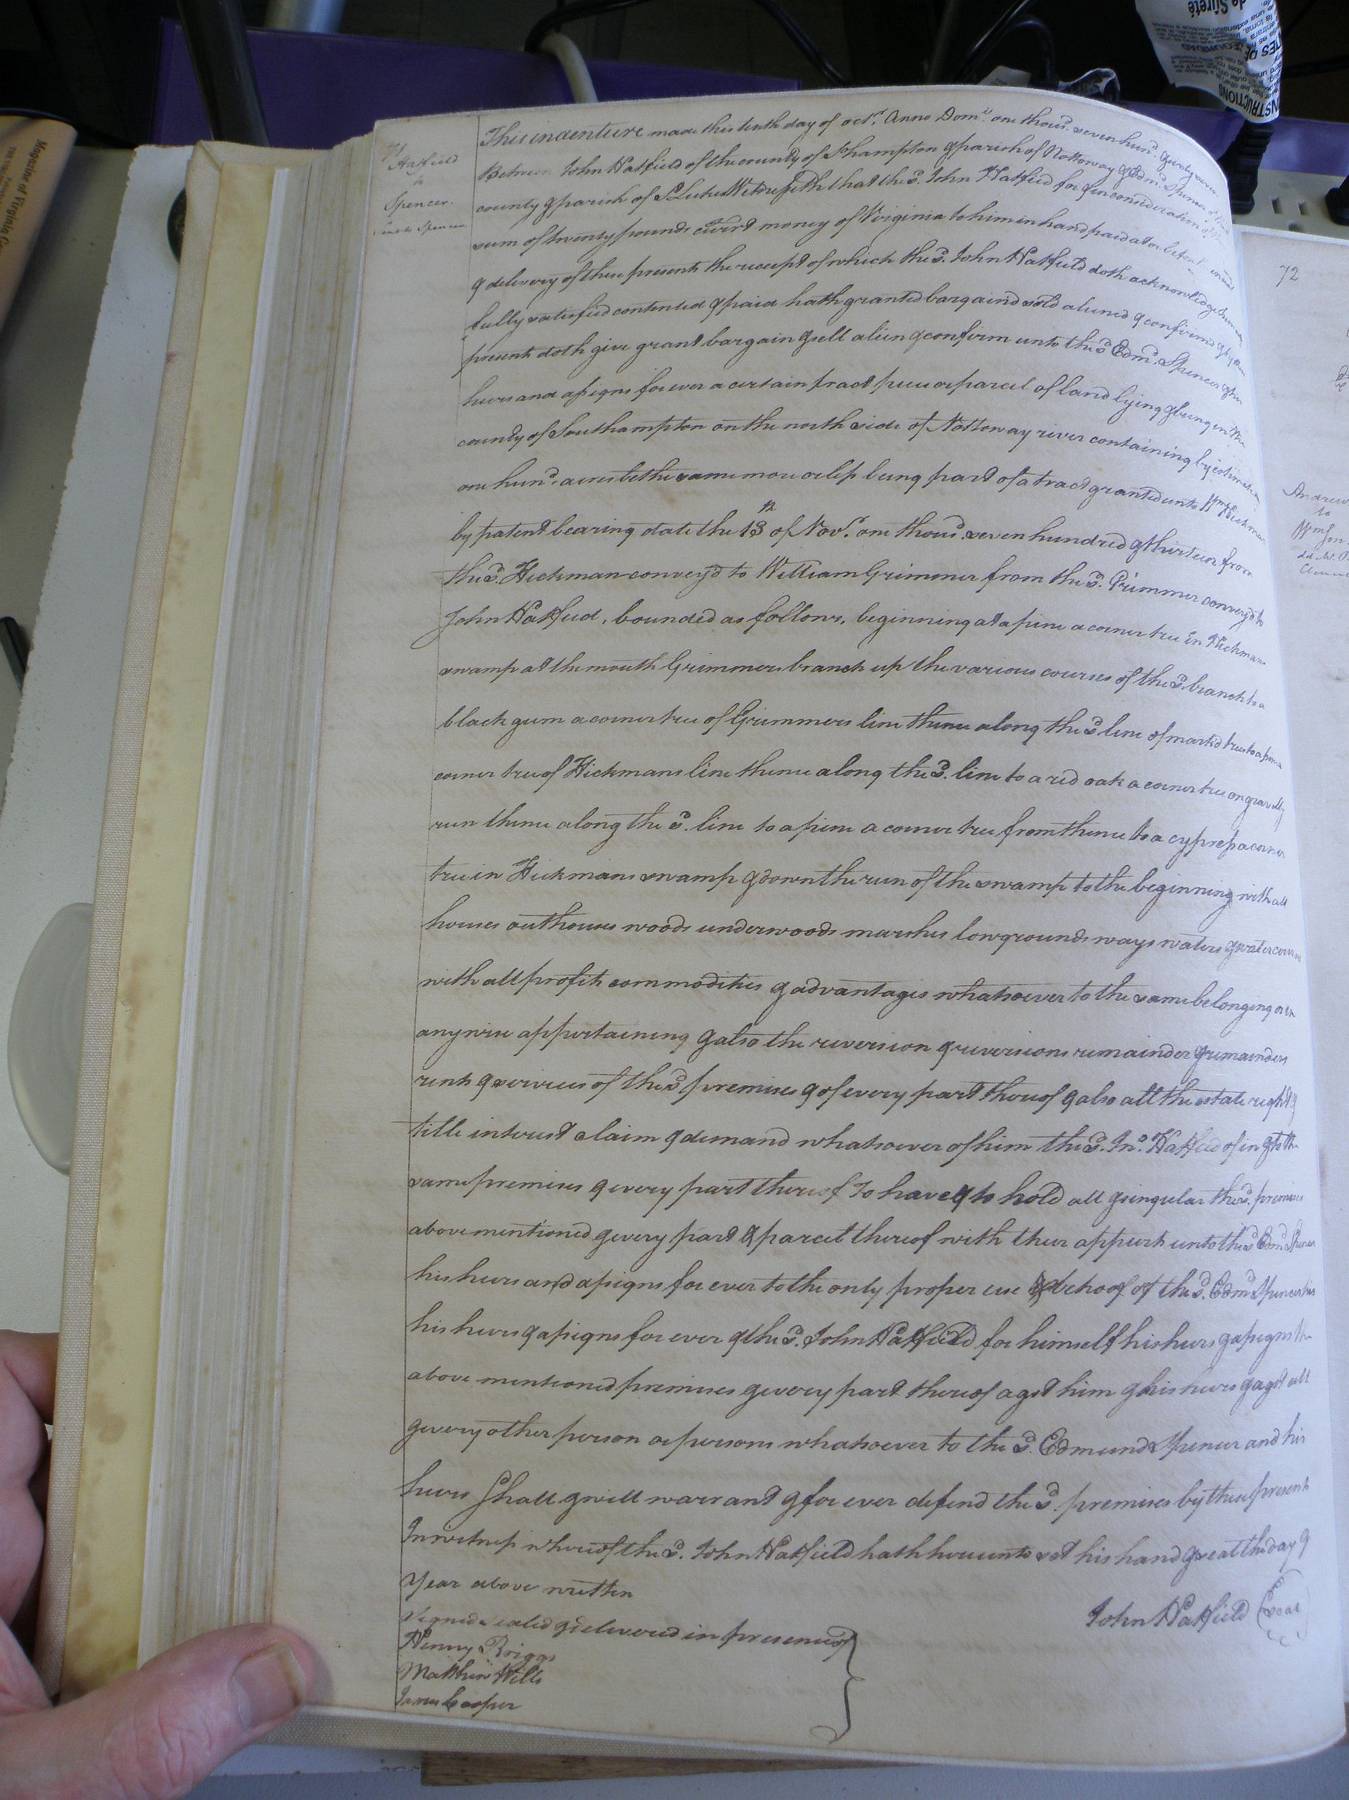 71
Hatfield
to
Spencer
This indenture made this tenth day of octr. Anno Domi. one thousd. seven hundd. & forty seven
Between John Hatfield of the county of S:hampton & parish of Nottoway & Edmd. Spencer of
county & parish of St Lukes Witnesseth that the sd. John Hatfield for & in consideration of the
sum of twenty pounds currt money of Virginia to him in hand paid at or before
& delivery of these presents the receipt of which the sd. John Hatfield doth acknowledge
fully satisfied contented & paid hath granted bargaind sold aliened & confirmed & by these
presents doth give grant bargain & sell alien & confirm unto the sd Edmd. Spencer & his
heirs and assigns for ever a certain tract peice or parcel of land lying & being in the
county of Southampton on the north side of Nottoway river containing by estimation
one hund. acres be the same more or less being part of a tract granted unto Wm Hickman
by patent bearing date the 13th of Novr. one thousd. seven hundred & thirteen from
the sd. Hickman convey'd to William Grimmer from the sd. Grimmer convey'd to
John Hatfield, bounded as follows, beginning at a pine a corner tree in Hickmans
swamp at the mouth Grimmers branch up the various courses of the sd. branch to a
black gum a corner tree of Grimmers line thence along the sd line of mark'd trees to a pine a
corner tree of Hickmans line thence along the sd. line to a red oak a corner tree on gravelly
run thence along the sd. line to a pine a corner tree from thence to a cypress a corner
tree in Hickmans swamp & down the run of the swamp to the beginning with all
houses outhouses woods underwoods marshes lowgrounds ways waters & watercourses
with all profits commodities & advantages whatsoever to the same belonging or in
anywise appertaining & also the reversion & reversions remainder & remainders
rents & services of the sd premises & of every part thereof & also all the estate right &
title interest claim & demand whatsoever of him the sd. Jno. Hatfield of in & to the
same premises & every part thereof To have & to hold all & singular the sd. premises
above mentioned & every part & parcel thereof with their appurts unto the sd Edmd. Spencer
his heirs and assigns for ever to the only proper use & behoof of the sd. Edmd Spencer his
his heirs & assigns for ever & the sd. John Hatfield for himself his heirs & assigns the
above mentioned premises & every part thereof agst him & his heirs & agst all
& every other person or persons whatsoever to the sd. Edmund Spencer and his
heirs Shall & will warrant & for ever defend the sd. premises by these presents
In witness whereof the sd. John Hatfield hath hereunto set his hand & seal the day &
year above written
John Hatfield (Seal)
Signed sealed & delivered in presence of
Henry Briggs
Matthew Wills
James Cooper
72
Andrews
to
Magazine of Virginia